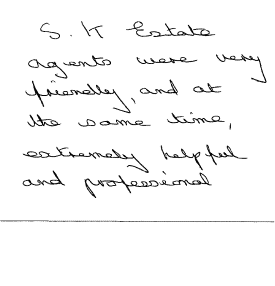 S. K Estate
agents were very
friendly, and at
the same time,
extremely helpful
and professional